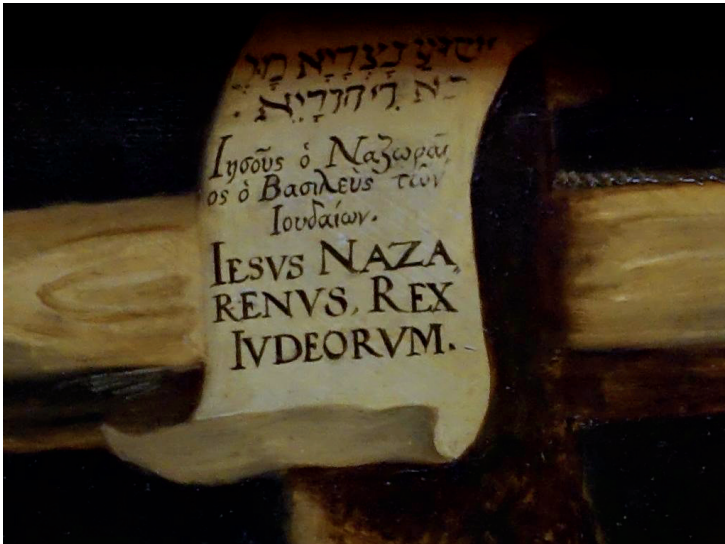 ישוע נָצְרָיָא מַלְ
כָא דִיהוּדָיֵא
Ιησοῦς ὁ Ναζωραῖ
ος ὁ Βασιλεὺς τῶν
Ιουδαίων.
IESVS NAZA
RENVS, REX
IVDEORVM.